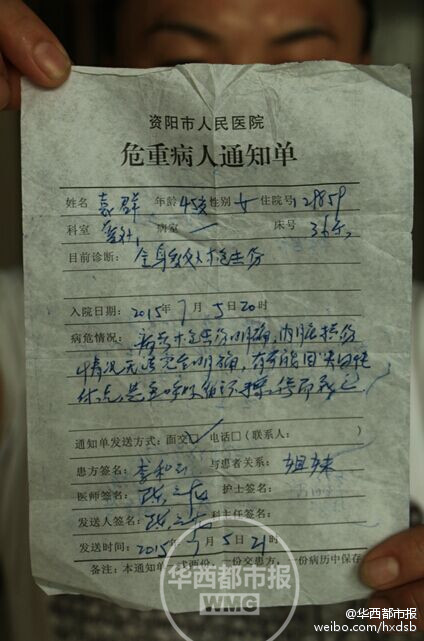 资阳市人民医院
危重病人通知单
姓名 袁群 年龄 45岁 性别 女 住院号 29859
科室 普外 病室 一 床号 36床
目前诊断: 全身多处枪击伤
入院日期: 2015年7月5日20时
病危情况: 枪击伤明确,内脏损伤
情况无法完全明确,有可能因失血性
休克
通知单发送方式: 面交☑ 电话□ (联系人: )
患方签名: 李和 与患者关系: 姐妹
医师签名: 护士签名:
发送人签名: 科主任签名:
发送时间: 2015年7月5日21时
备注: 本通知单一式两份,一份交患方,一份病历中保存
华西都市报
WMG
@华西都市报
weibo.com/hxdsb